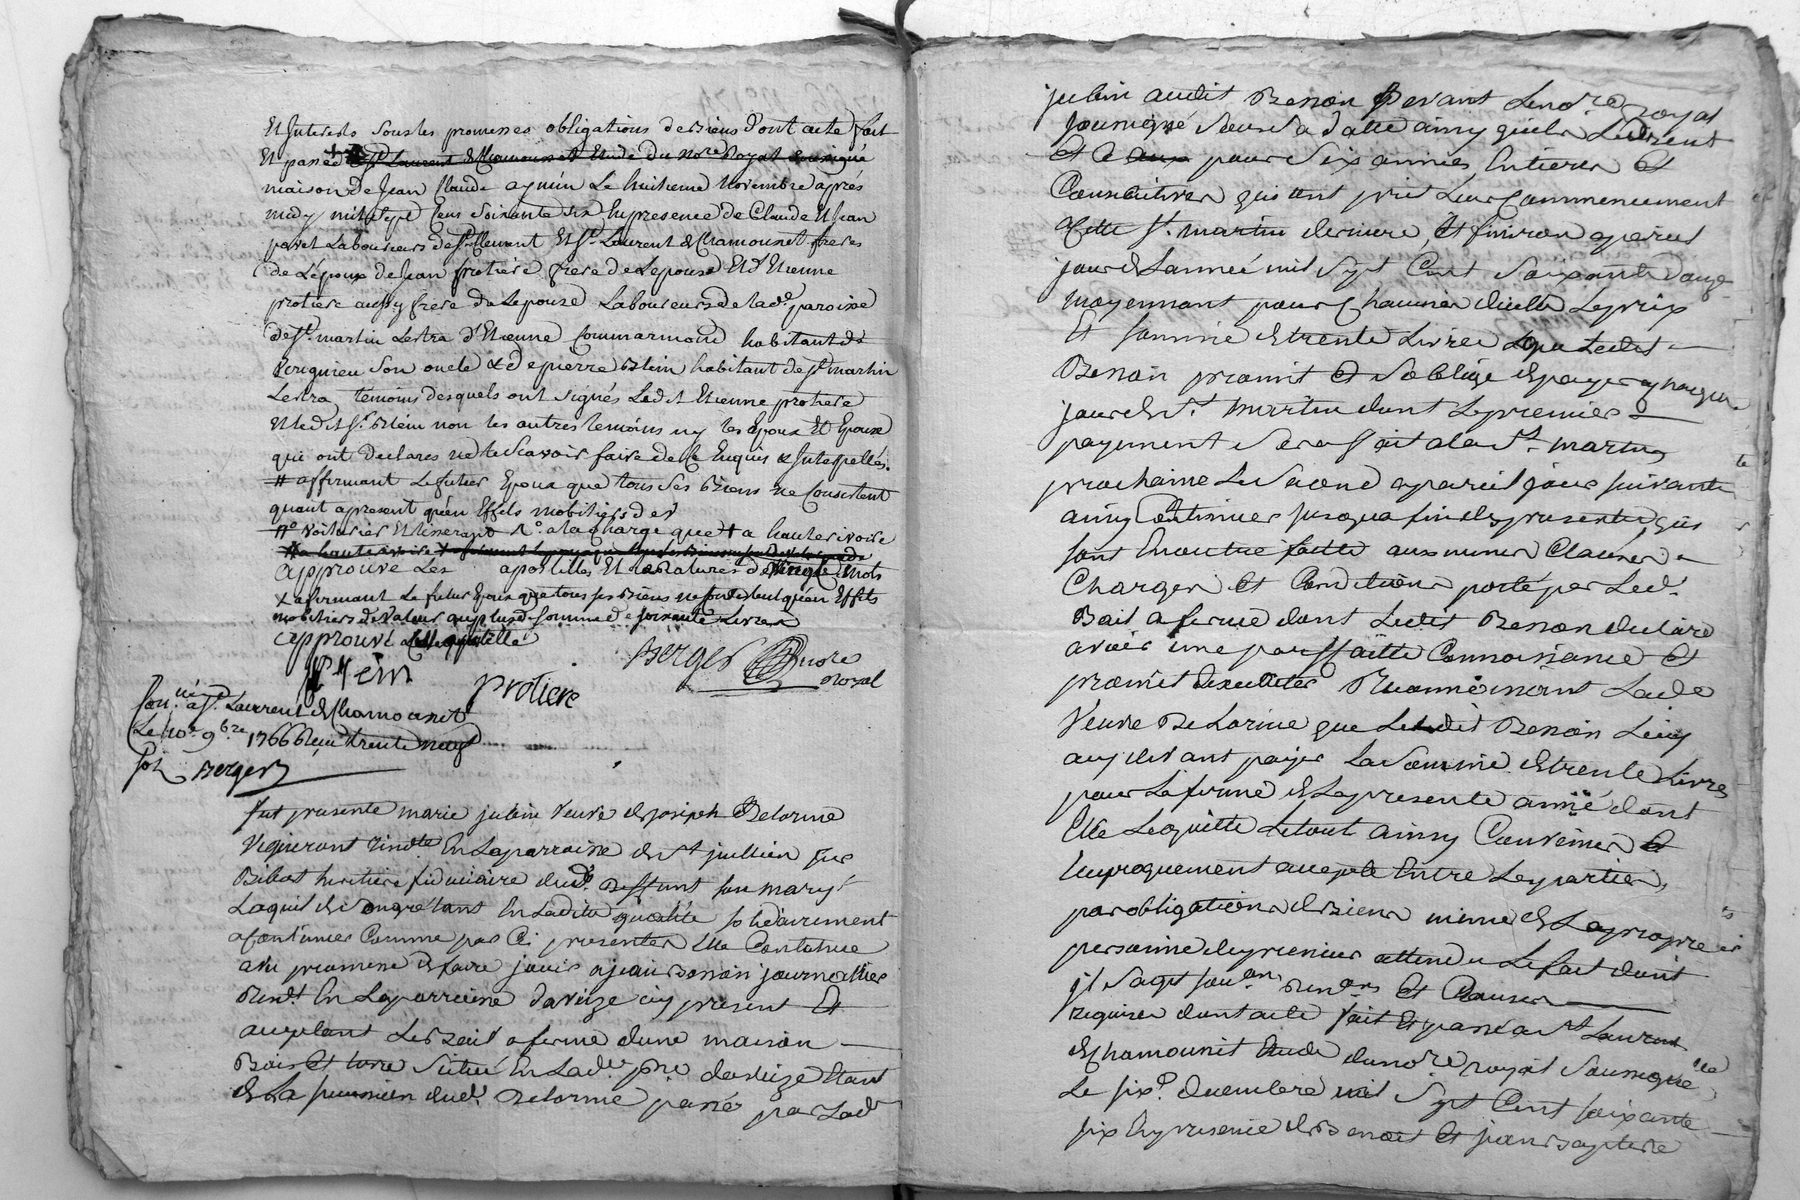 Et Interests sous les promesses obligations de biens Dont acte fait
Et passé St Laurent de Chamounet Etude du Nore Royal soussigné
maison De Jean Claude le huitieme Novembre après
midy mil sept Cens soixante six En presence de Claude Et Jean
Laboureurs de St Clement Et St Laurent de Chamounet freres
de L'epoux de Jean protiere frere de Lepouse Et d'Etienne
protiere aussy frere de Lepouse Laboureurs de lad. paroisse
de St martin Lestra d'Etienne Commarmond habitant de
Virignieu Son oncle & de pierre Blein habitant de St martin
Lestra temoins desquels ont signés Led.t Etienne protiere
Et led.t Sr Blein non les autres temoins ny les Epoux Et Epouse
qui ont Declarés ne le Scavoir faire de Ce Enquis & Interpellés.
# affirmant Le futur Epoux que tous Ses Biens ne Consistent
quant apresent qu'en Effets mobiliers de
a la Charge que + a haute voix
approuvé Les apostilles Et ratures de Vingt mots
X afirmant Le futur Epoux que tous ses Biens ne Consistent qu'en Effets
mobiliers De Valeur au plus de somme de soixante Livres
approuvé
Blein protiere Berger nore Royal
Con. a St Laurent de Chamounet
Le 10e 9bre 1766 Reçu trente neuf
sols Berger
fut presente marie jubin veuve de joseph Delorme
Vigneront En La parroisse de St jullien sur
Bibost heritiere fiduciaire dud. Deffunt son mary
Laquelle de Son gré tant En Ladite qualité solidairement
a Continuer Comme par Ces presentes Elle Continue
avec promesse de faire jouir a jean Besson journallier
Resid.t En La parroisse daveize icy present Et
acceptant Le Bail a ferme dune maison
Bois et terre Situé En Lad.e pse daveize Etant
de La succession dud. Delorme passés par Lad.
jubin audit Besson Devant Le no.re royal
soussigné Sous Sa datte ainsy quils Ledisent
Et Ce pour Six années Entieres Et
Consecutives qui ont pris Leur Commencement
a Cette St martin derniere, Et finiron a pareil
jour de Lannée mil Sept Cent Soixante douze
moyennant pour Chacune dicelle Le prix
Et somme de trente Livres que Ledit
Besson promit Et Soblige de payer a chaque
jour de St martin dont Le premier
payement Sera fait a la St martin
prochaine Le Second a pareil jour suivant
ainsy Continuer jusqua fin des presentes, qui
sont En outre faitte aux memes Clauses
Charges Et Conditions porté par Led.
Bail a ferme dont Ledit Besson declare
avoir une parffaitte Connoissance Et
promet dexecuter Reconnoissant Lad.e
veuve Delorme que Ledit Besson Luy
aux devant payer La Somme de trente Livres
pour La ferme de La presente année dont
Elle Lequitte Le tout ainsy Convenus Et
reciproquement accepté Entre Les parties,
par obligations de Biens meme de La propre
personne du preneur attendu Le fait dont
jl Sagit sou.on ren.ons Et Clauses
requises dont acte fait Et passé a St Laurent
de Chamounit Etude du no.re royal Soussigné
Le six.e decembre mil Sept Cent soixante
six En presence de Benoit Et jean Baptiste